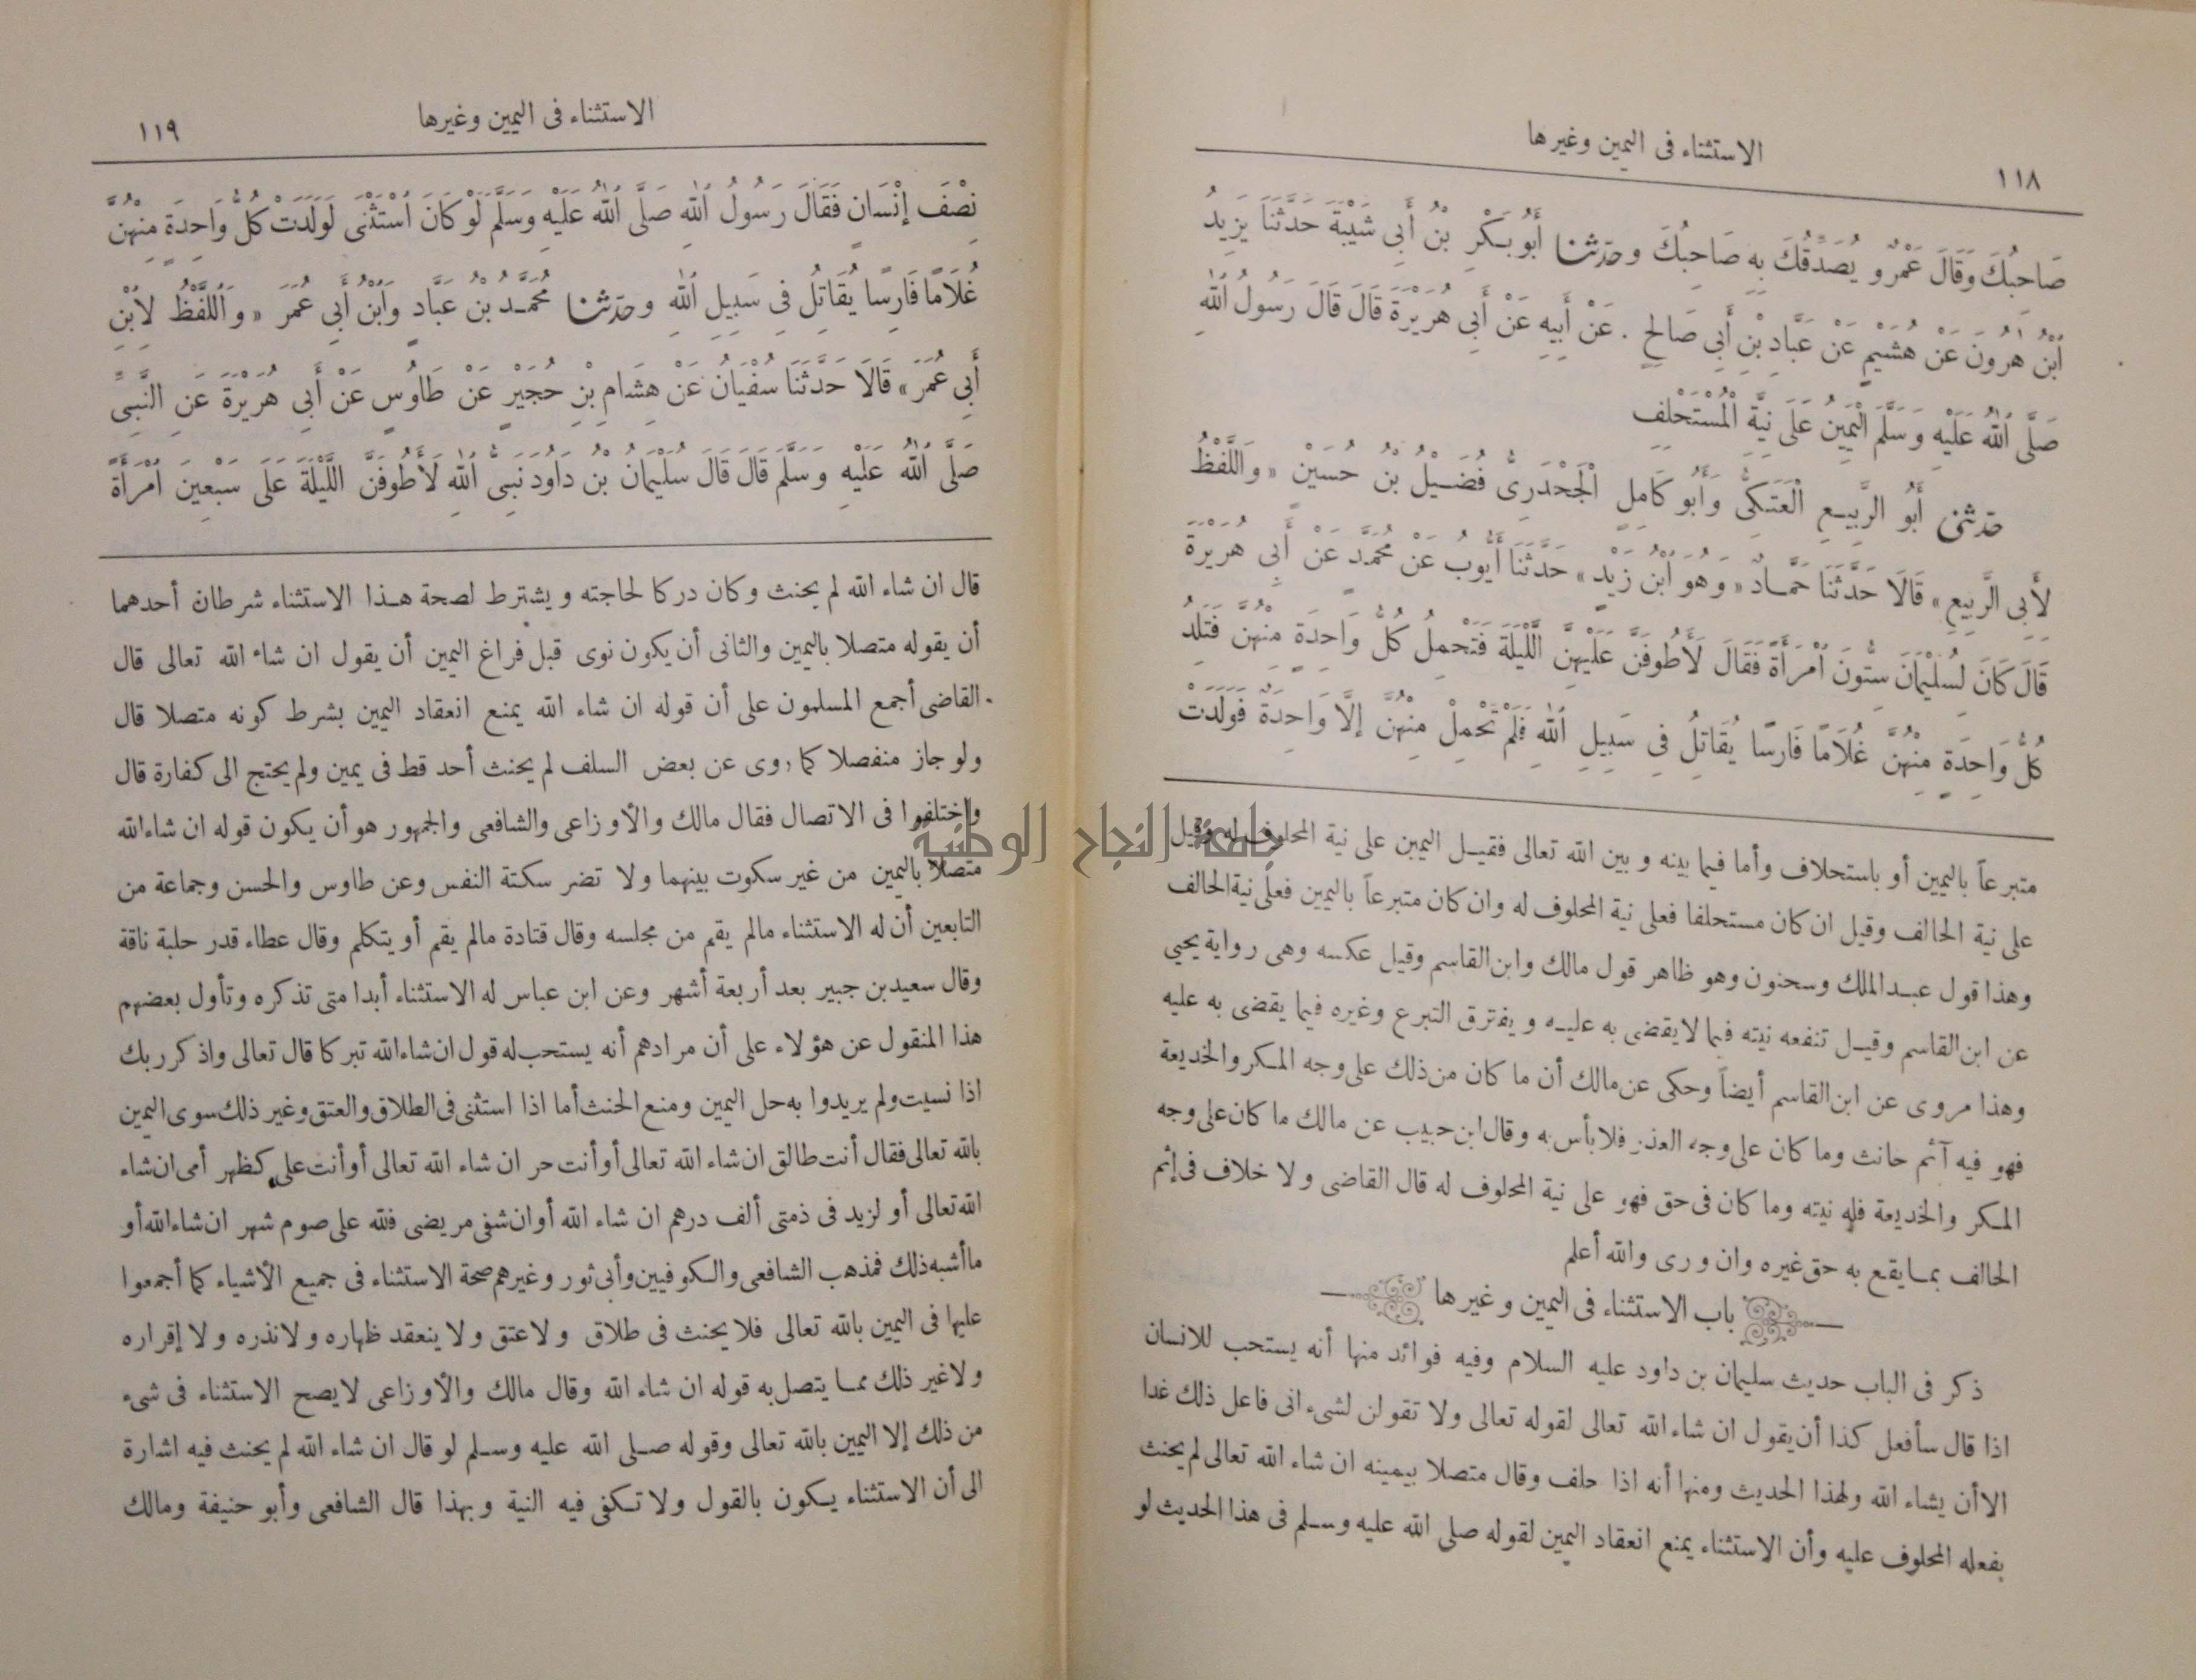 ١١٨
الاستثناء فى اليمين وغيرها
صَاحِبُكَ وَقَالَ عَمْرٌو يُصَدِّقُكَ بِهِ صَاحِبُكَ و حَدَّثنا أَبُو بَكْرِ بْنُ أَبِي شَيْبَةَ حَدَّثَنَا يَزِيدُ
ابْنُ هٰرُونَ عَنْ هُشَيْمٍ عَنْ عَبَّادِ بْنِ أَبِي صَالِحٍ . عَنْ أَبِيهِ عَنْ أَبِي هُرَيْرَةَ قَالَ قَالَ رَسُولُ اللهِ
صَلَّى اللهُ عَلَيْهِ وَسَلَّمَ الْيَمِينُ عَلَى نِيَّةِ الْمُسْتَحْلِفِ
حَدَّثنى أَبُو الرَّبِيعِ الْعَتَكِيُّ وَأَبُو كَامِلٍ الْجَحْدَرِيُّ فُضَيْلُ بْنُ حُسَيْنٍ « وَاللَّفْظُ
لِأَبِي الرَّبِيعِ » قَالَا حَدَّثَنَا حَمَّادٌ « وَهُوَ ابْنُ زَيْدٍ » حَدَّثَنَا أَيُّوبُ عَنْ مُحَمَّدٍ عَنْ أَبِي هُرَيْرَةَ
قَالَ كَانَ لِسُلَيْمَانَ سِتُّونَ امْرَأَةً فَقَالَ لَأَطُوفَنَّ عَلَيْهِنَّ اللَّيْلَةَ فَتَحْمِلُ كُلُّ وَاحِدَةٍ مِنْهُنَّ فَتَلِدُ
كُلُّ وَاحِدَةٍ مِنْهُنَّ غُلَامًا فَارِسًا يُقَاتِلُ فِي سَبِيلِ اللهِ فَلَمْ تَحْمِلْ مِنْهُنَّ إِلَّا وَاحِدَةٌ فَوَلَدَتْ
متبرعاً باليمين أو باستحلاف وأما فيما بينه وبين الله تعالى فقيل اليمين على نية المحلوف له وقيل
على نية الحالف وقيل ان كان مستحلفا فعلى نية المحلوف له وان كان متبرعاً باليمين فعلى نية الحالف
وهذا قول عبد الملك وسحنون وهو ظاهر قول مالك وابن القاسم وقيل عكسه وهى رواية يحيى
عن ابن القاسم وقيل تنفعه نيته فيما لا يقضى به عليه ويفترق التبرع وغيره فيما يقضى به عليه
وهذا مروى عن ابن القاسم أيضاً وحكى عن مالك أن ما كان من ذلك على وجه المكر والخديعة
فهو فيه آثم حانث وما كان على وجه العذر فلا بأس به وقال ابن حبيب عن مالك ما كان على وجه
المكر والخديعة فله نيته وما كان فى حق فهو على نية المحلوف له قال القاضى ولا خلاف فى إثم
الحالف بما يقع به حق غيره وان ورى والله أعلم
باب الاستثناء فى اليمين وغيرها
ذكر فى الباب حديث سليمان بن داود عليه السلام وفيه فوائد منها أنه يستحب للانسان
اذا قال سأفعل كذا أن يقول ان شاء الله تعالى لقوله تعالى ولا تقولن لشىء انى فاعل ذلك غدا
الا أن يشاء الله ولهذا الحديث ومنها أنه اذا حلف وقال متصلا بيمينه ان شاء الله تعالى لم يحنث
بفعله المحلوف عليه وأن الاستثناء يمنع انعقاد اليمين لقوله صلى الله عليه وسلم فى هذا الحديث لو
الاستثناء فى اليمين وغيرها
١١٩
نِصْفَ إِنْسَانٍ فَقَالَ رَسُولُ اللهِ صَلَّى اللهُ عَلَيْهِ وَسَلَّمَ لَوْ كَانَ اسْتَثْنَى لَوَلَدَتْ كُلُّ وَاحِدَةٍ مِنْهُنَّ
غُلَامًا فَارِسًا يُقَاتِلُ فِي سَبِيلِ اللهِ و حَدَّثنا مُحَمَّدُ بْنُ عَبَّادٍ وَابْنُ أَبِي عُمَرَ « وَاللَّفْظُ لِابْنِ
أَبِي عُمَرَ » قَالَا حَدَّثَنَا سُفْيَانُ عَنْ هِشَامِ بْنِ حُجَيْرٍ عَنْ طَاوُسٍ عَنْ أَبِي هُرَيْرَةَ عَنِ النَّبِيِّ
صَلَّى اللهُ عَلَيْهِ وَسَلَّمَ قَالَ قَالَ سُلَيْمَانُ بْنُ دَاوُدَ نَبِيُّ اللهِ لَأَطُوفَنَّ اللَّيْلَةَ عَلَى سَبْعِينَ امْرَأَةً
قال ان شاء الله لم يحنث وكان دركا لحاجته ويشترط لصحة هذا الاستثناء شرطان أحدهما
أن يقوله متصلا باليمين والثانى أن يكون نوى قبل فراغ اليمين أن يقول ان شاء الله تعالى قال
القاضى أجمع المسلمون على أن قوله ان شاء الله يمنع انعقاد اليمين بشرط كونه متصلا قال
ولو جاز منفصلا كما روى عن بعض السلف لم يحنث أحد قط فى يمين ولم يحتج الى كفارة قال
واختلفوا فى الاتصال فقال مالك والأوزاعى والشافعى والجمهور هو أن يكون قوله ان شاء الله
متصلا باليمين من غير سكوت بينهما ولا تضر سكتة النفس وعن طاوس والحسن وجماعة من
التابعين أن له الاستثناء مالم يقم من مجلسه وقال قتادة مالم يقم أو يتكلم وقال عطاء قدر حلبة ناقة
وقال سعيد بن جبير بعد أربعة أشهر وعن ابن عباس له الاستثناء أبدا متى تذكره وتأول بعضهم
هذا المنقول عن هؤلاء على أن مرادهم أنه يستحب له قول ان شاء الله تبركا قال تعالى واذكر ربك
اذا نسيت ولم يريدوا به حل اليمين ومنع الحنث أما اذا استثنى فى الطلاق والعتق وغير ذلك سوى اليمين
بالله تعالى فقال أنت طالق ان شاء الله تعالى أو أنت حر ان شاء الله تعالى أو أنت على كظهر أمى ان شاء
الله تعالى أو لزيد فى ذمتى ألف درهم ان شاء الله أو ان شفى مريضى فلله على صوم شهر ان شاء الله أو
ما أشبه ذلك فمذهب الشافعى والكوفيين وأبى ثور وغيرهم صحة الاستثناء فى جميع الأشياء كما أجمعوا
عليها فى اليمين بالله تعالى فلا يحنث فى طلاق ولا عتق ولا ينعقد ظهاره ولا نذره ولا إقراره
ولا غير ذلك مما يتصل به قوله ان شاء الله وقال مالك والأوزاعى لا يصح الاستثناء فى شىء
من ذلك إلا اليمين بالله تعالى وقوله صلى الله عليه وسلم لو قال ان شاء الله لم يحنث فيه اشارة
الى أن الاستثناء يكون بالقول ولا تكفى فيه النية وبهذا قال الشافعى وأبو حنيفة ومالك
جامعة النجاح الوطنية